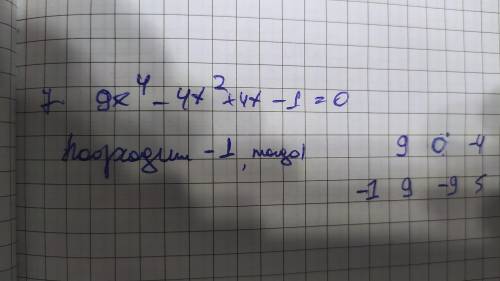 7. 9x⁴ - 4x² + 4x - 1 = 0
Подходит -1, тогда 9 0 -4
-1 9 -9 5